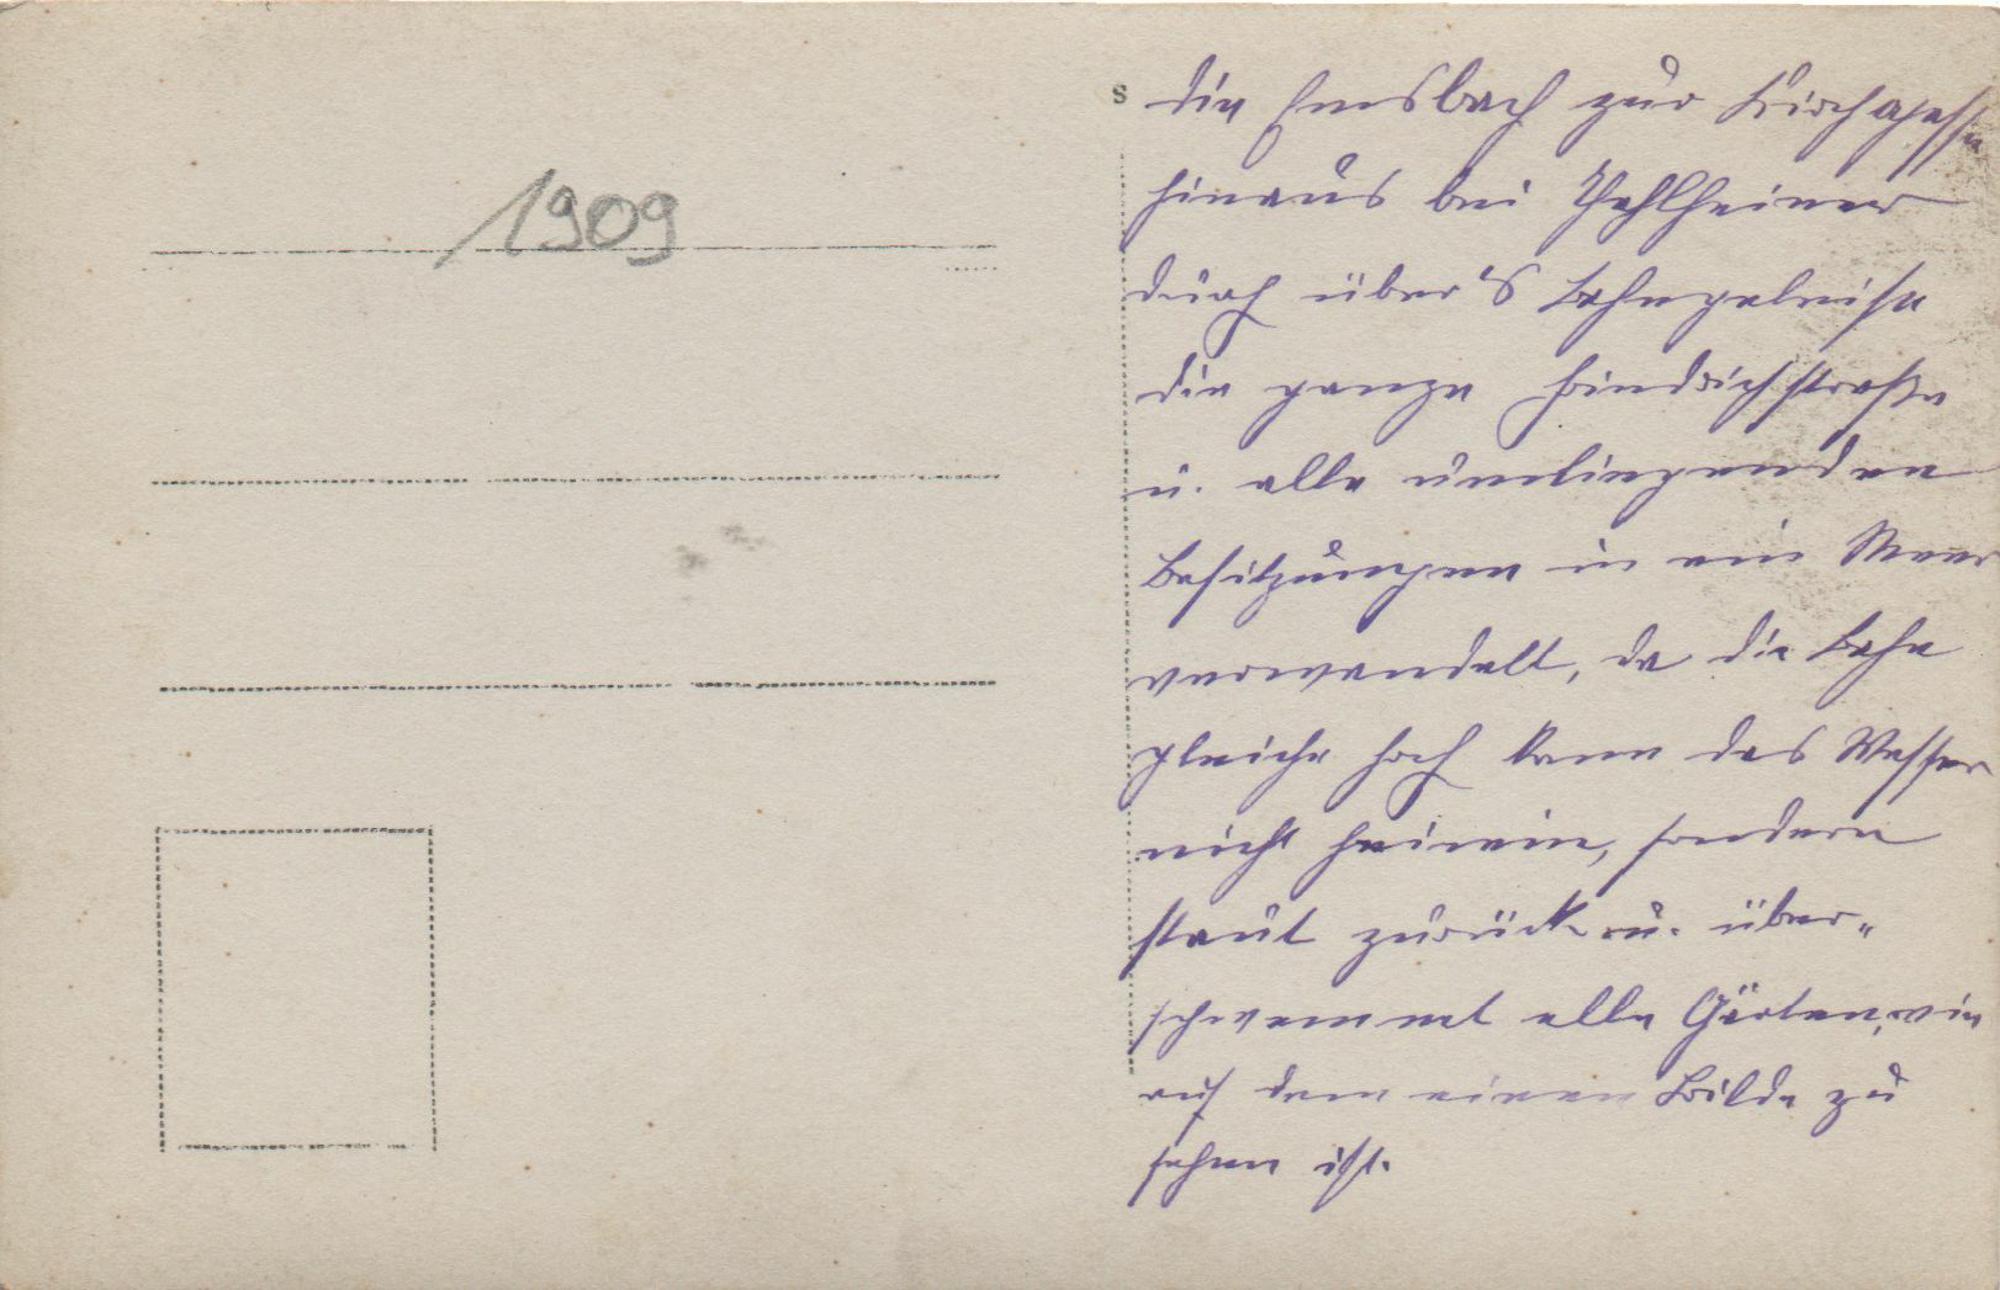 1909
s
die Emsbach zur Kirchgasse
hinaus bei Pfahlheimer
durch über's Bahngeleise
die ganze Friedrichstraße
u. alle umliegenden
Besitzungen in ein Meer
verwandelt, da die Bahn
gleiche hoch kann das Wasser
nicht hinein, sondern
staut zurück u. über„
schwemmt alle Gärten, wie
auf dem einen Bilde zu
sehen ist.